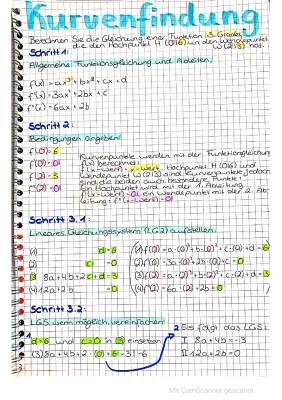 Kurvenfindung
Berechnen Sie die Gleichung einer Funktion 3. Grades,
die den Hochpunkt H (0|6) und den Wendepunkt
W (2|3) hat.
Schritt 1:
Allgemeine Funktionsgleichung und Ableiten.
f(x) = ax³ + bx² + cx + d
f'(x) = 3ax² + 2bx + c
f''(x) = 6ax + 2b
Schritt 2:
Bedingungen angeben!
f(0) = 6
f'(0) = 0
f(2) = 3
f''(2) = 0
Kurvenpunkte werden mit der Funktionsgleichung
f(x) berechnet!
f(x-Wert) = y-Wert Hochpunkt H (0|6) und
Wendepunkt W (2|3) sind Kurvenpunkte, jedoch
sind die beiden auch besondere Punkte!
Ein Hochpunkt wird mit der 1. Ableitung
f'(x-Wert) = 0, ein Wendepunkt mit der 2. Ab-
leitung f''(x-Wert) = 0
Schritt 3.1:
Lineares Gleichungssystem (LGS) aufstellen:
(1) d = 6
(2) c = 0
(3) 8a + 4b + 2c + d = 3
(4) 12a + 2b = 0
(1) f(0) = a·(0)³ + b·(0)² + c·(0) + d = 6
(2) f'(0) = 3a·(0)² + 2b·(0) + c = 0
(3) f(2) = a·(2)³ + b·(2)² + c·(2) + d = 3
(4) f''(2) = 6a·(2) + 2b = 0
Schritt 3.2:
LGS wenn möglich, vereinfachen!
1 d = 6 und c = 0 in (3) einsetzen
(3) 8a + 4b + 2·(0) + 6 = 3 | -6
2 Es folgt das LGS:
I 8a + 4b = -3
II 12a + 2b = 0
Mit CamScanner gescannt